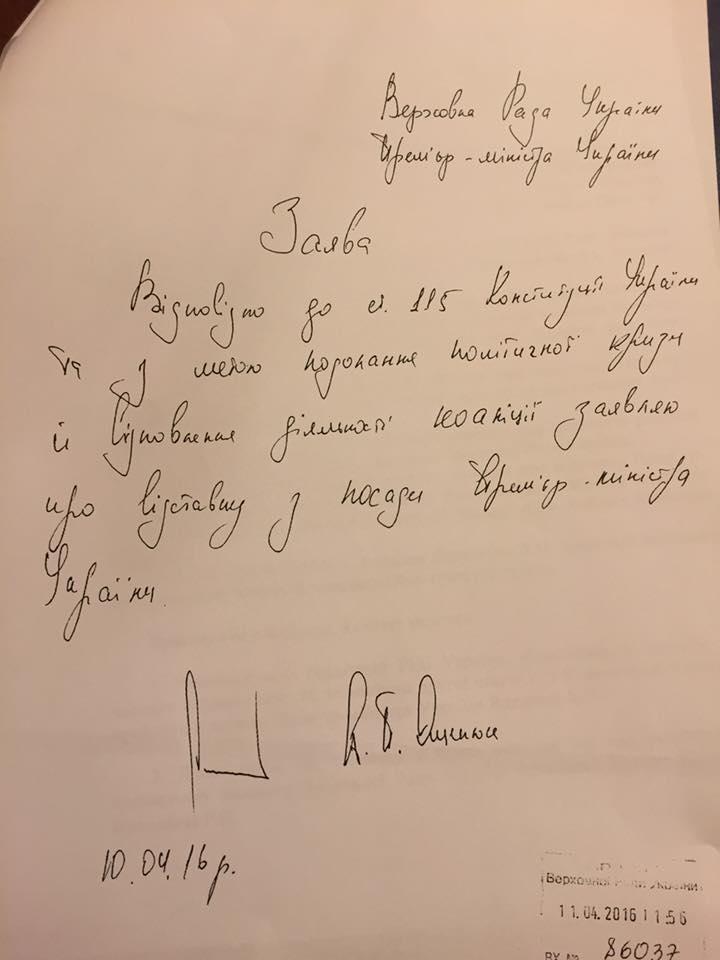 Верховна Рада України
Прем'єр-міністра України
Заява
Відповідно до ст. 115 Конституції України
та з метою подолання політичної кризи
й відновлення діяльності коаліції заявляю
про відставку з посади Прем'єр-міністра
України.
А.П. Яценюк
10.04.16 р.
Верховної Ради України
11.04.2016 11 56
ВХ. №
86037